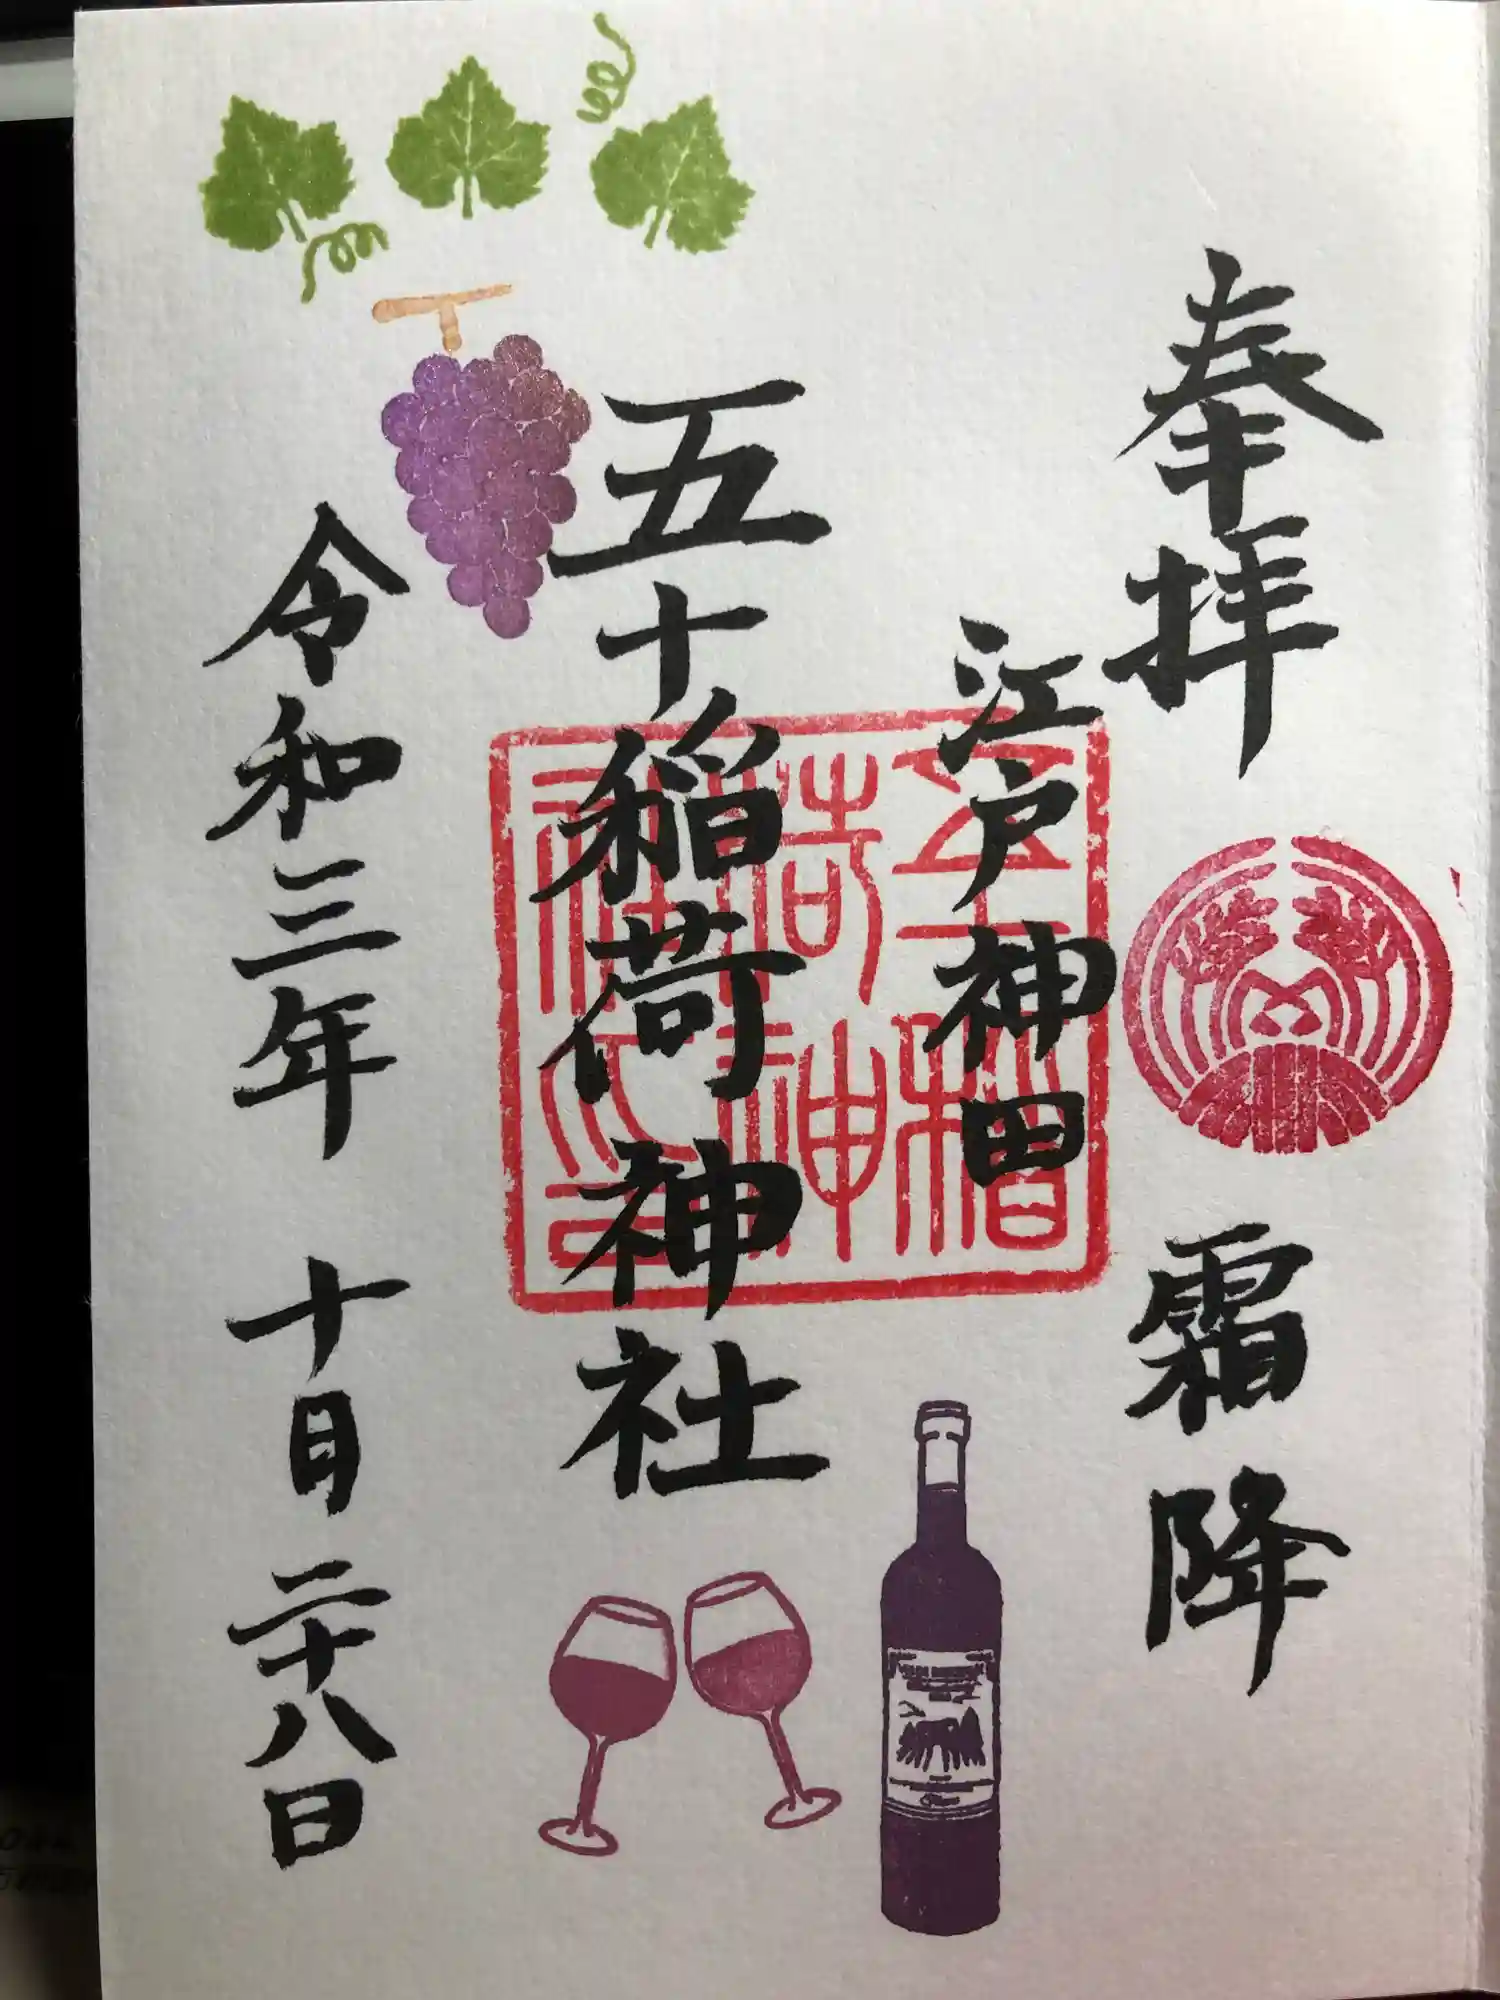 奉拝
霜降
江戸神田
五十稲荷神社
五十稲荷神社之印
令和三年 十月 二十八日